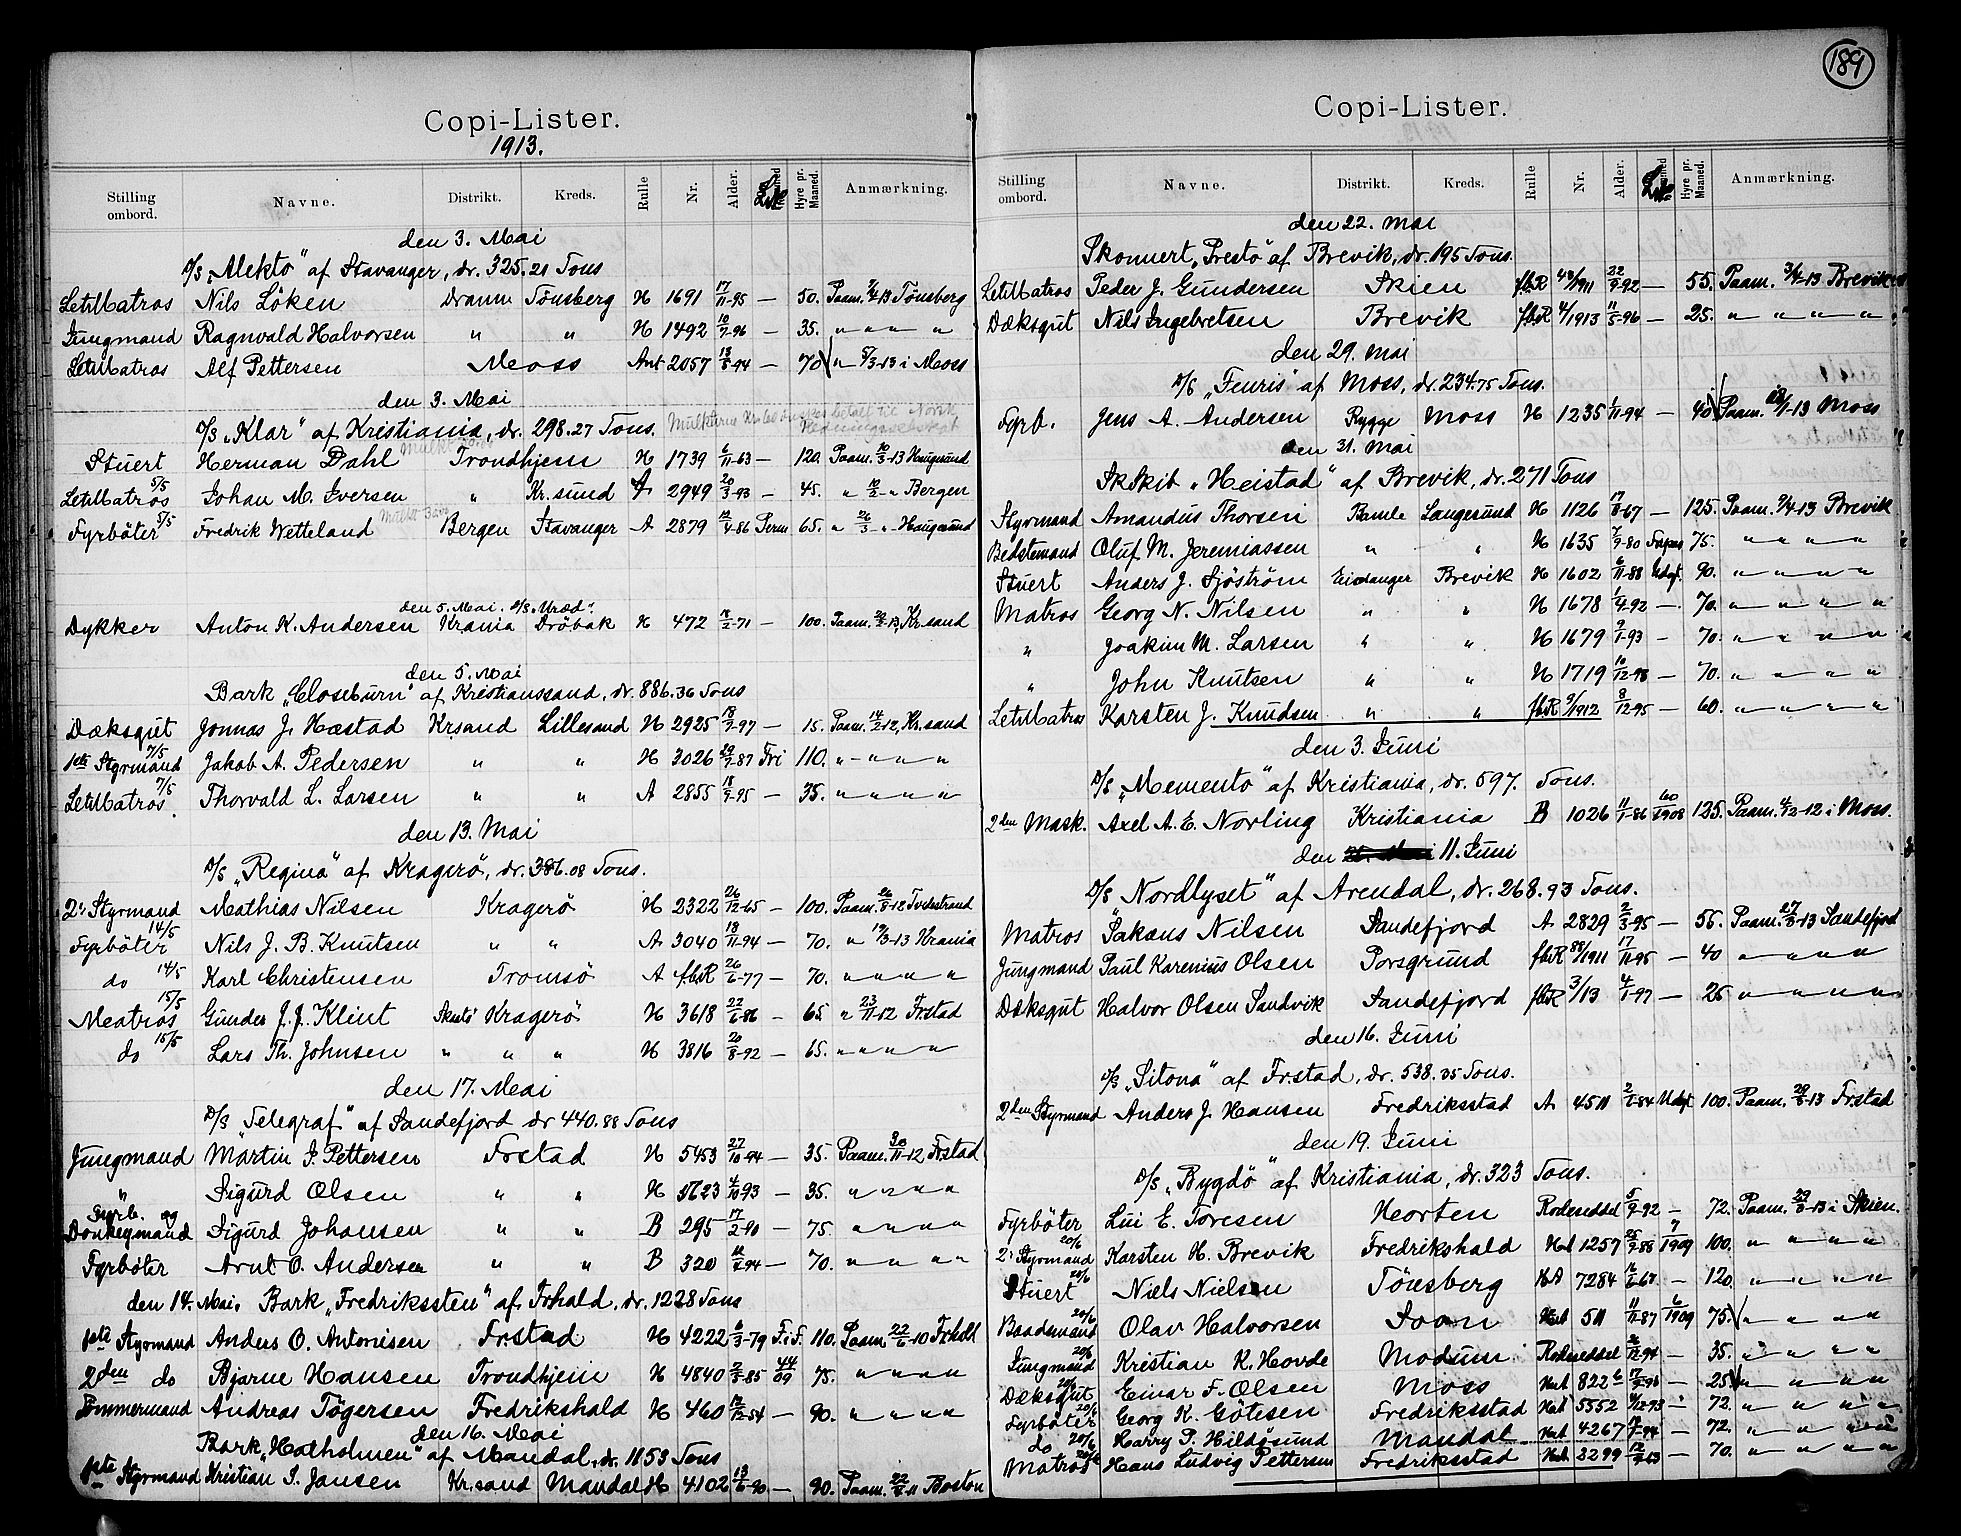 Copi-Lister.
1913.
Stilling ombord. Navne. Distrikt. Kreds. Rulle Nr. Alder. Hyre pr. Maaned. Anmærkning.
den 3. Mai
D/S „Alekto" af Stavanger, dr. 325.21 Tons
LetMatros Nils Löken Dramm Tönsberg H 1691 17/11-95 — 50. Paam. 13 Tönsberg
Jungmand Ragnvald Halvorsen " " H 1492 10/7-96 — 35. " " " "
LetMatros Alf Pettersen Moss Ant 2057 13/8-94 — 70 " 5/3-13 i Moss
den 3. Mai
D/S „Klar" af Kristiania, dr. 298.27 Tons.
Stuert Herman Dahl Trondhjem H 1739 6/11-63 — 120. Paam. 10/3-13 Haugesund
LetMatros 5/5 Johan M. Iversen " Kr.sund A 2949 20/3-93 — 45. " 10/2 - " Bergen
Fyrböter 5/5 Fredrik Wetteland Bergen Stavanger A 2879 12/4-86 Perm 65. " 26/3 - " - Haugesund
den 5. Mai. D/S. „Uræd".
Dykker Anton K. Andersen Krania Dröbak H 472 18/2-71 — 100. Paam. 13, Kr.sand
den 5. Mai
Bark „Closeburn" af Kristianssand, dr. 886.36 Tons
Dæksgut Jonnas J. Hæstad Krsand Lillesand H 2925 18/7-97 — 15. Paam. 14/2-12, Kr.sand
1ste Styrmand 7/5 Jakob A. Pedersen " " H 3026 29/7-87 Fri 110. " " " "
LetMatros 7/5 Thorvald L. Larsen " " A 2855 18/9-95 — 35. " " " "
den 13. Mai
D/S „Regina" af Kragerö, dr. 386.08 Tons.
2. Styrmand Mathias Nilsen Kragerö H 2322 26/12-65 — 100. Paam. 26/8-12 Tvedestrand
Fyrböter 14/5 Nils J. B. Knutsen " " A 3040 18/11-94 — 70. " 19/3-13 Krania
do 14/5 Karl Christensen Tromsö A f.b.R 26/6-77 — 70. " " " "
Matros 15/5 Gunder J. J. Klint Skaatö Kragerö H 3618 22/6-86 — 65. " 23/11-12 Frstad
do 15/5 Lars Th. Johnsen " " " H 3816 20/8-92 — 65. " " " "
den 17. Mai
D/S „Telegraf" af Sandefjord dr 440.88 Tons
Jungmand Martin J. Pettersen Frstad H 5453 27/10-94 — 35. Paam. 30/11-12 Frstad
" Sigurd Olsen " " H 5623 4/10-93 — 35. " " " "
Fyrb. og Donkeymand Sigurd Johansen " " B 295 17/2-90 — 75. " " " "
Fyrböter Arnt O. Andersen " " B 320 -94 — 70. " " " "
den 14. Mai. Bark „Fredrikssten" af Frhald, dr. 1228 Tons
1ste Styrmand Anders O. Antonisen Frstad H 4222 6/3-79 F.i F. 110. Paam. 22/6-10 Frhald
2den do Bjarne Hansen Trondhjem H 4840 2/3-85 44/09 75. " " " "
Tömmermand Andreas Tögersen Fredrikshald H 460 12/12-54 — 90. " " " "
den 16. Mai
Bark „Hatholmen" af Mandal, dr. 1153 Tons
1ste Styrmand Kristian S. Jansen Kr.sand Mandal H 4102 13/6-90 — 90. Paam. 22/8-11 Boston
189
Copi-Lister.
Stilling ombord. Navne. Distrikt. Kreds. Rulle Nr. Alder. Hyre pr. Maaned. Anmærkning.
den 22. Mai
Skonnert „Presto" af Brevik, dr. 195 Tons.
LetMatros Peder J. Gundersen Skien fbR 48/1911 22/9-92 — 55. Paam. 3/4-13 Brevik
Dæksgut Nils Ingebretsen Brevik fbR 4/1913 11/5-96 — 25. " " " "
den 29. Mai
D/S „Fenris" af Moss, dr. 234.75 Tons.
Fyrb. Jens A. Andersen Rygge Moss H 1235 1/11-94 — 40 Paam. 1-13 Moss
den 31. Mai
SkSkib „Heistad" af Brevik, dr. 271 Tons
Styrmand Amandus Thorsen Bamle Langesund H 1126 17/8-67 — 125. Paam. 7/4-13 Brevik
Bedstemand Oluf M. Jeremiassen " " H 1635 7/9-80 75. " " " "
Stuert Anders J. Sjöström Eidanger Brevik H 1602 6/11-88 Udgf. 90. " " " "
Matros Georg N. Nilsen " " H 1678 1/4-92 — 70. " " " "
" Joakim M. Larsen " " H 1679 9/1-93 — 70. " " " "
" John Knutsen " " H 1719 10/12-93 — 70. " " " "
LetMatros Karsten J. Knudsen " " fbR 9/1912 8/12-95 — 60. " " " "
den 3. Juni
D/S „Memento" af Kristiania, dr. 597. Tons.
2den Mask. Axel A. E. Norling Kristiania B 1026 11/1-86 60/1908 125. Paam. 4/12-12 i Moss.
den 11. Juni
D/S „Nordlyset" af Arendal, dr. 268.93 Tons.
Matros Sakans Nilsen Sandefjord A 2829 2/3-95 — 55. Paam. 27/3-13 Sandefjord
Jungmand Paul Karenius Olsen Porsgrund fbR 88/1911 17/11-95 — 40 " " " "
Dæksgut Halvor Olsen Sandvik Sandefjord fbR 3/13 4/1-97 — 25 " " " "
den 16. Juni
D/S „Sitona" af Fr.stad, dr. 538.35 Tons.
2den Styrmand Anders J. Hansen Fredriksstad A 4511 2/1-84 Udgf. 100. Paam. 29/3-13 Frstad
den 19. Juni
D/S „Bygdö" af Kristiania, dr. 323 Tons.
Fyrböter Lui E. Toresen Horten Rodeseddel 5/9-92 — 72. Paam. 29/3-13 i Skien.
2. Styrmand 20/6 Karsten H. Brevik Fredrikshald Hvt 1257 25/9-88 7/1909 100. " " " "
Stuert 20/6 Niels Nielsen Tönsberg HA 7284 16/6-67 — 120. " " " "
Baadsmand 20/6 Olav Halvorsen Soon Hvt 511 11/11-87 6/1909 75. " " " "
Jungmand 20/6 Kristian K. Hovde Modum Rodeseddel 12-94 — 35. " " " "
Dæksgut 20/6 Einar F. Olsen Moss Hvt 822 — 25 " " " "
Fyrböter 20/6 Georg K. Götesen Fredriksstad Hvt 5552 — 72. " " " "
do 20/6 Harry P. Hildösund Mandal Hvt 4267 — 72. " " " "
Matros 20/6 Hans Ludvig Pettersen Fredriksstad Hvt 3299 12/7-63 — 70. " " " "